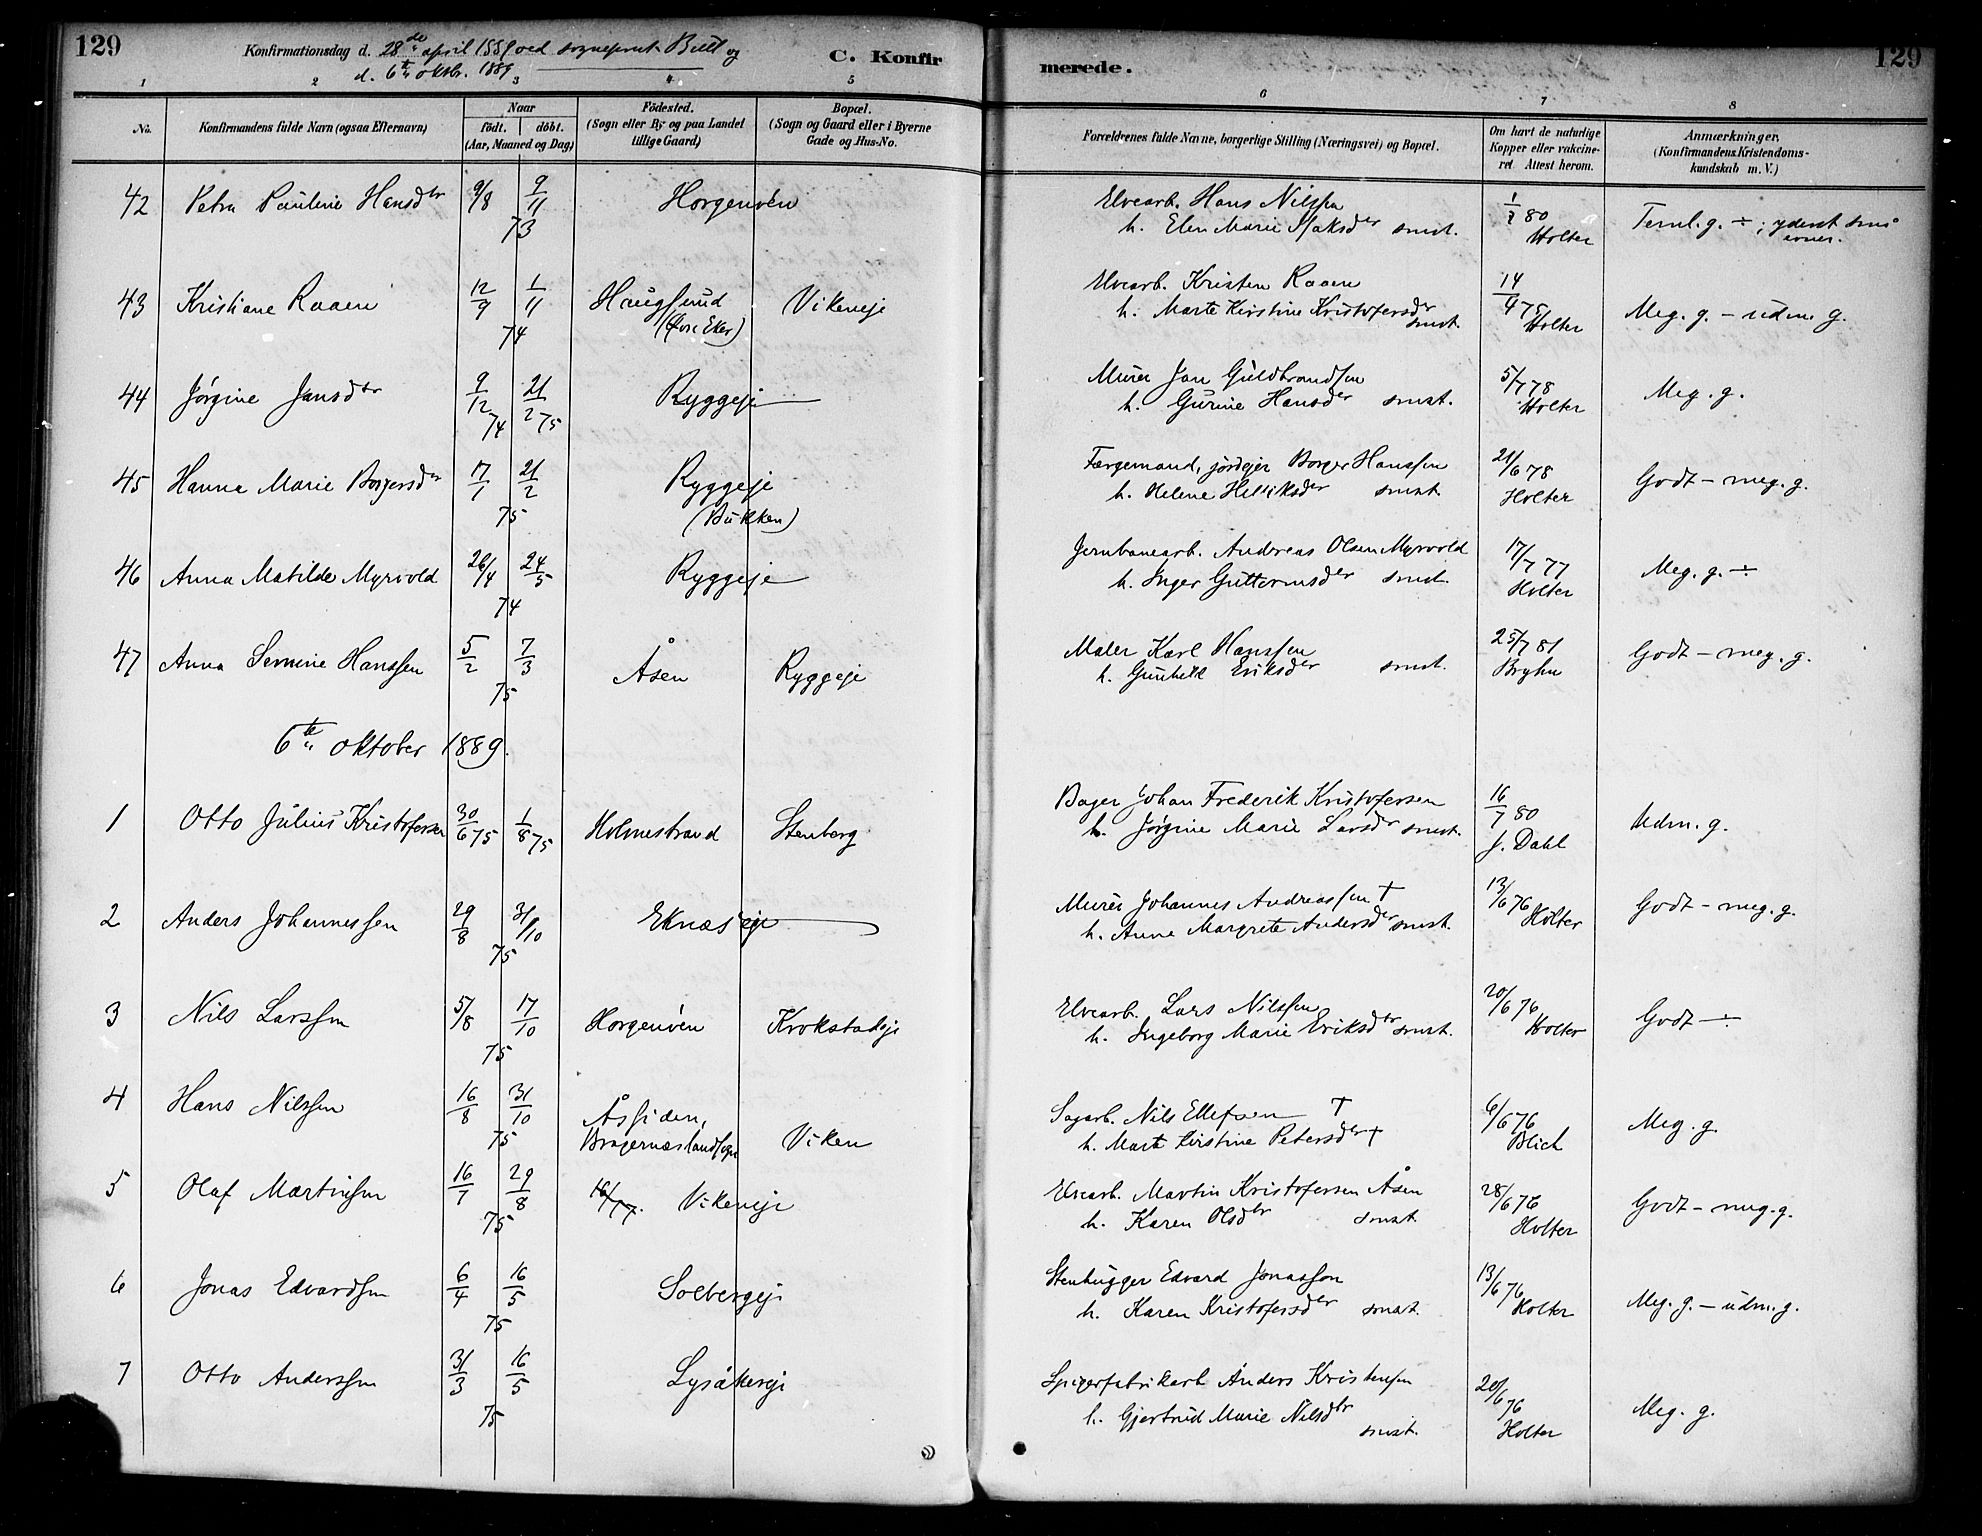 129
Konfirmationsdag d. 28de april 1889 ved sogneprest Bull og
d. 6te oktbr. 1889
C. Konfirmerede.
129
1 2 3 4 5 6 7 8
No.
Konfirmandens fulde Navn (ogsaa Efternavn)
Naar
født. døbt.
(Aar, Maaned og Dag)
Födested.
(Sogn eller By og paa Landet
tillige Gaard)
Bopæl.
(Sogn og Gaard eller i Byerne
Gade og Hus-No.
Forældrenes fulde Navne, borgerlige Stilling (Næringsvei) og Bopæl.
Om havt de naturlige
Kopper eller vakcine-
ret. Attest herom.
Anmærkninger.
(Konfirmandens Kristendoms-
kundskab m. V.)
42 Petra Pauline Hansdtr 9/8 9/11 Horgenvén Elvearb. Hans Nilssen 1/7 80 Teml. g. ÷; yderst små
73 h. Elen Marie Isaksder smst. Holter evner.
43 Kristiane Raaen 12/9 1/11 Haugsund Vikeneje Elvearb. Kristen Raaen 14/9 75 Meg. g. – udm. g.
74 (Øvre Eker) h. Marte Kirstine Kristofersder smst. Holter
44 Jørgine Jansdtr 9/12 74 21/2 75 Ryggeje Murer Jan Guldbrandsen 5/7 78 Meg. g.
h. Gurine Hansder smst. Holter
45 Hanna Marie Borgersdtr 17/1 21/2 Ryggeje Færgemand, jordejer Borger Hanssen 21/6 78 Godt – meg. g.
75 (Bukken) h. Helene Helliksder smst. Holter
46 Anna Matilde Myrvold 26/4 24/5 Ryggeje Jernbanearb. Andreas Olsen Myrvold 17/7 77 Meg. g. ÷
74 h. Inger Guttormsder smst. Holter
47 Anna Semine Hanssen 5/2 7/3 Åsen Ryggeje Maler Karl Hanssen 25/7 81 Godt – meg. g.
75 h. Gunhild Eriksder smst. Bryhn
6te oktober 1889.
1 Otto Julius Kristofersen 30/6 75 1/8 75 Holmestrand Stenberg Bager Johan Frederik Kristofersen 16/7 80 Udm. g.
h. Jørgine Marie Larsdtr smst. J. Dahl
2 Anders Johannessen 29/8 31/10 Eknæseje Murer Johannes Andreassen † 13/6 76 Godt – meg. g.
75 h. Anne Margrete Andersder smst. Holter
3 Nils Larssen 5/8 17/10 Horgenvén Krokstadeje Elvearb. Lars Nilssen 20/6 76 Godt ÷
75 h. Ingeborg Marie Eriksder smst. Holter
4 Hans Nilssen 16/8 31/10 Åssiden, Viken Sagarb. Nils Ellefsen † 6/6 76 Meg. g.
75 Bragernæs landsogn h. Marte Kirstine Petersder † Blich
5 Olaf Martinsen 16/7 29/8 Vikeneje Elvearb. Martin Kristofersen Åsen 28/6 76 Godt – meg. g.
75 h. Karen Olsdtr smst. Holter
6 Jonas Edvardsen 6/4 16/5 Solbergeje Stenhugger Edvard Jonassen 13/6 76 Meg. g. – udm. g.
75 h. Karen Kristofersder smst. Holter
7 Otto Anderssen 31/3 16/5 Lysåkereje Spigerfabrikarb. Anders Kristensen 20/6 76 Meg. g.
75 h. Gjertrud Marie Nilsdtr smst. Holter